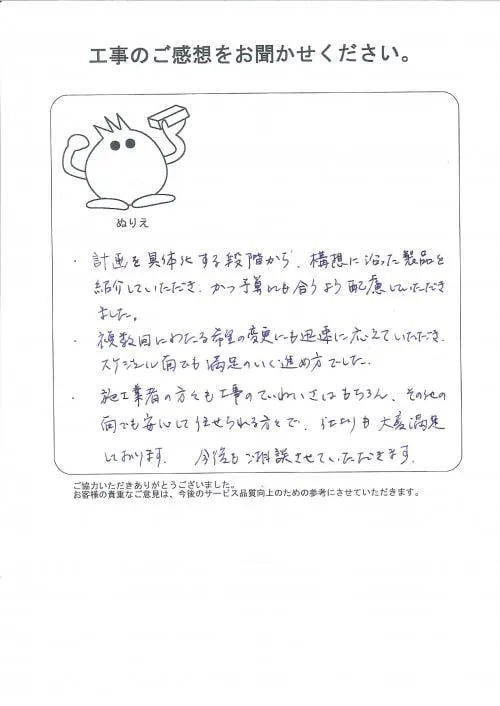 工事のご感想をお聞かせください。
ぬりえ
・計画を具体化する段階から、構想に沿った製品を
紹介していただき、かつ予算にも合うよう配慮していただき
ました。
・複数回にわたる希望の変更にも迅速に応えていただき、
スケジュール面でも満足のいく進め方でした。
・施工業者の方々も工事のていねいさはもちろん、その他の
面でも安心して任せられる方々で、仕上りも大変満足
しております。 今後もご相談させていただきます。
ご協力いただきありがとうございました。
お客様の貴重なご意見は、今後のサービス品質向上のための参考にさせていただきます。